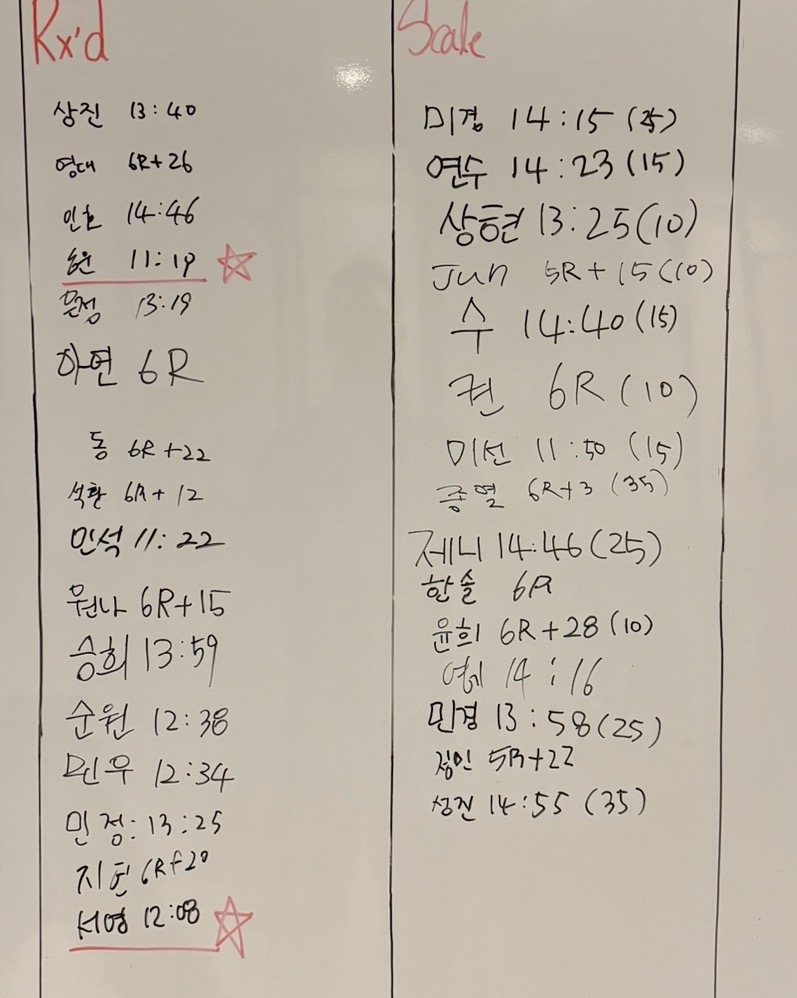 Rx'd
상진 13:40
영대 6R+26
인호 14:46
11:19
문정 13:19
아연 6R
동 6R+22
석환 6R+12
민석 11:22
뭔나 6R+15
승희 13:59
순원 12:38
민우 12:34
민정:13:25
지현 6R+20
서영 12:08
Scale
미경 14:15(25)
연수 14:23(15)
상현 13:25(10)
Jun 5R+15(10)
수 14:40(15)
권 6R(10)
미선 11:50(15)
종열 6R+3(35)
제니 14:46(25)
한솔 6R
윤희 6R+28(10)
14:16
민경 13:58(25)
정인 5R+22
성진 14:55(35)